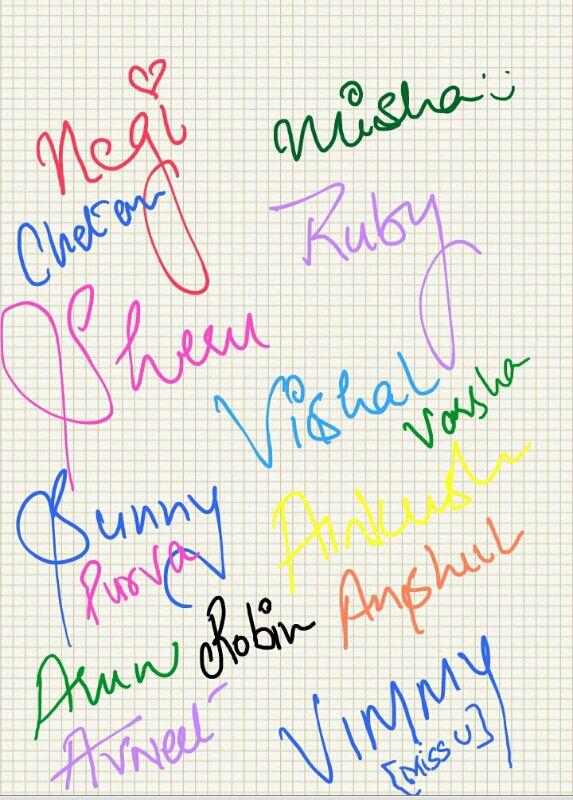 Negi
Misha
Chetan
Ruby
Sheeu
Vishal
Varsha
Bunny
Ankush
Purva
Anshul
Robin
Arun
Avneet
VIMMY
[Miss U]